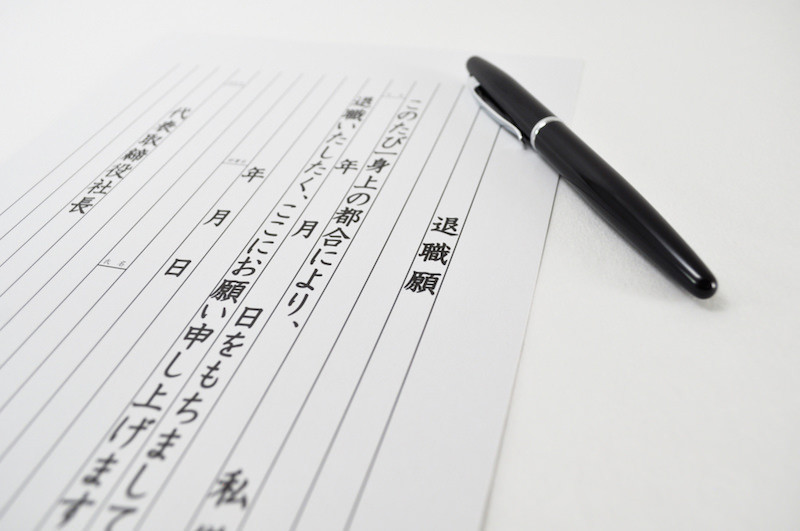 退職願
私
このたび一身上の都合により、
年 月 日をもちまして
退職いたしたく、ここにお願い申し上げます
年 月 日
氏名
代表取締役社長